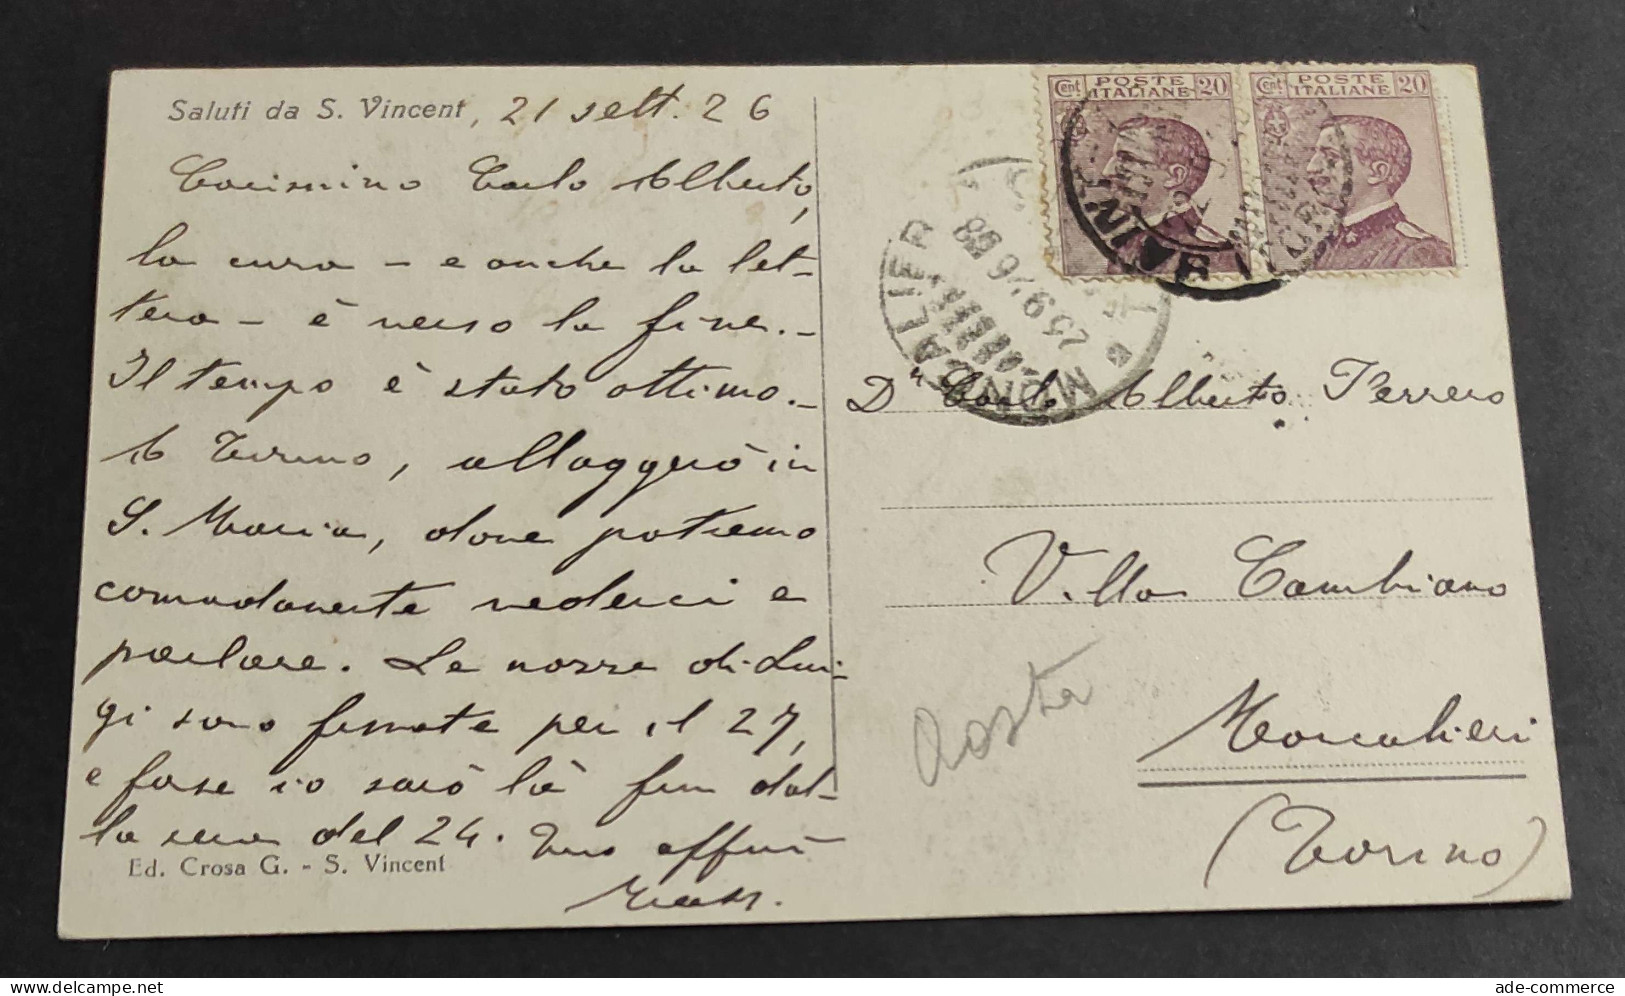 Saluti da S. Vincent, 21 sett. 26
Carissimo Carlo Alberto,
la cura - e anche la let-
tera - è verso la fine. -
Il tempo è stato ottimo. -
A Torino, alloggerò in
S. Maria, dove potremo
comodamente vederci e
parlare. Le nozze di Lui-
gi sono fissate per il 27,
e forse io sarò là fin dal-
la sera del 24. Tuo
Ed. Crosa G. - S. Vincent
Cent POSTE ITALIANE 20
Cent POSTE ITALIANE 20
MONCALIERI
25 9 26
Dr Carlo Alberto Ferrero
Villa Cambiano
Moncalieri
(Torino)
Aosta
ade-commerce